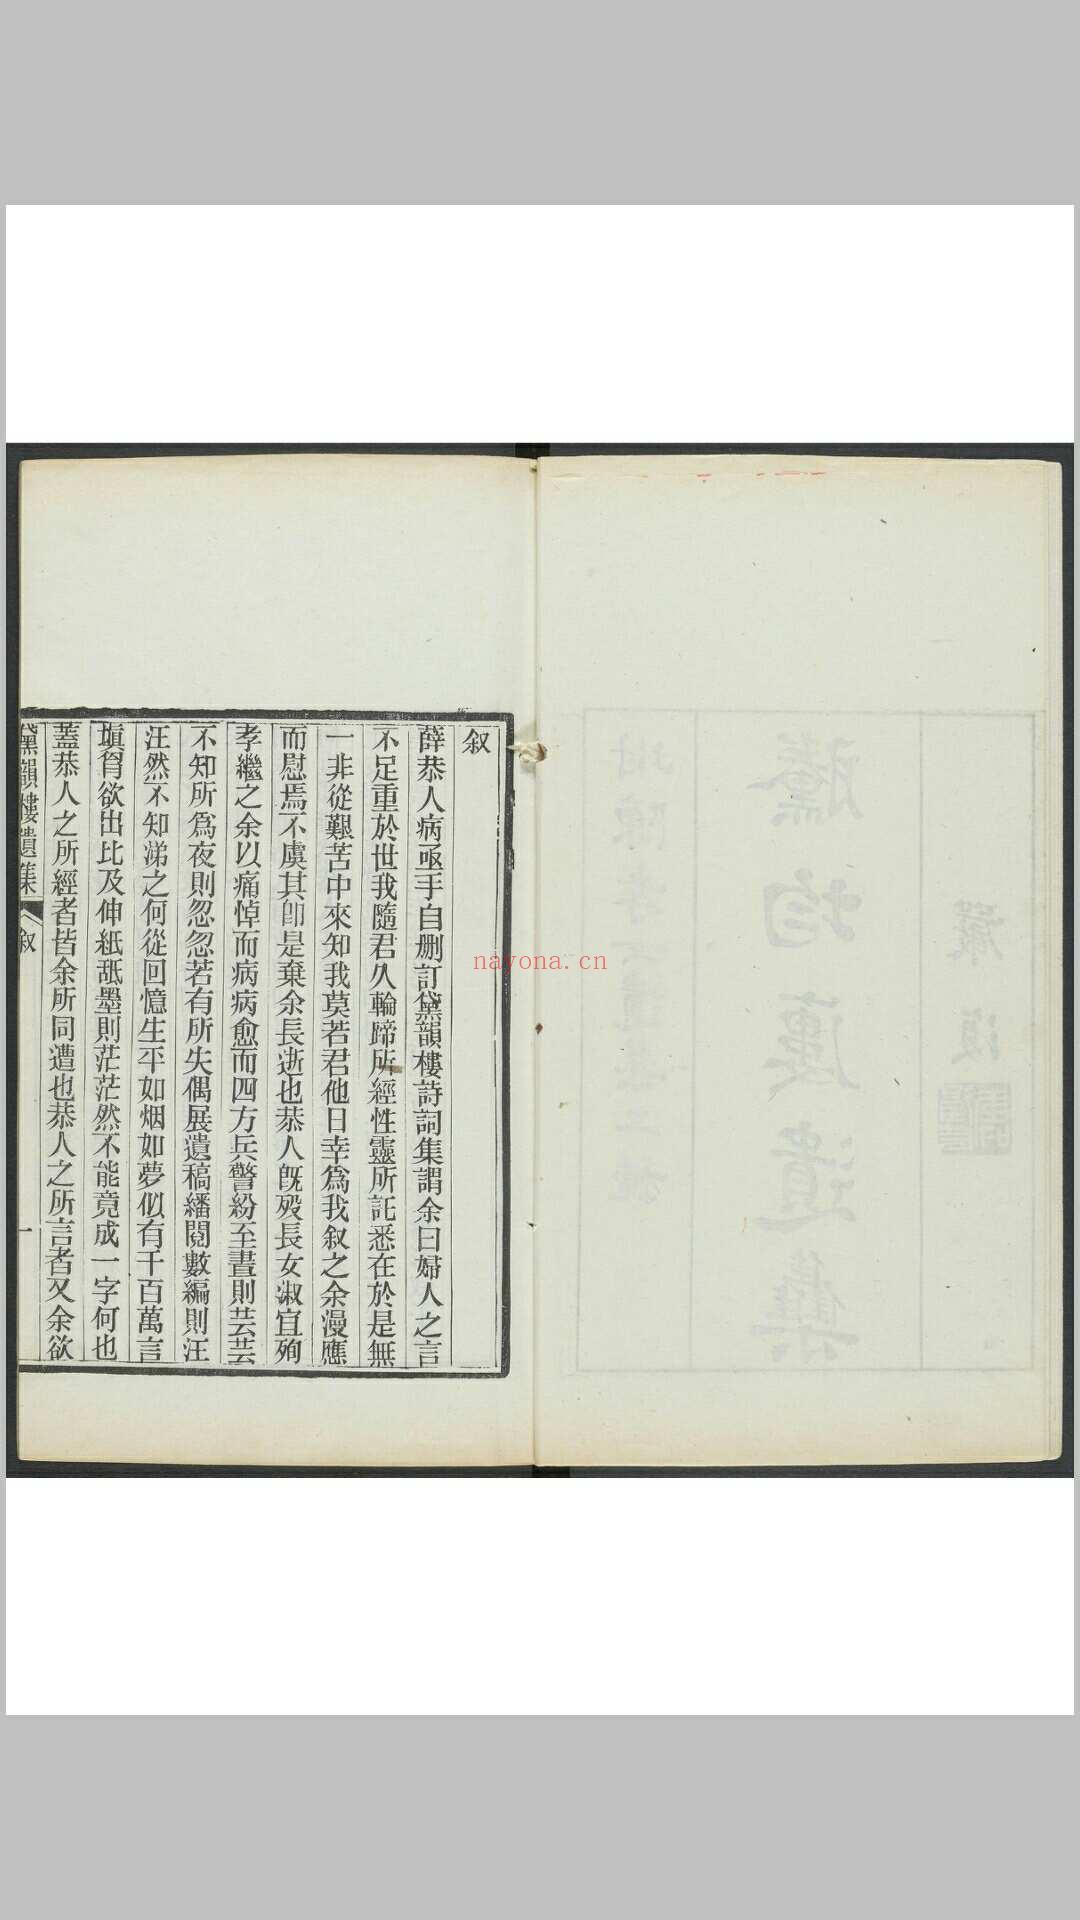 叙
薛恭人病亟手自刪訂黛韻樓詩詞集謂余曰婦人之言
不足重於世我隨君久輪蹄所經性靈所託悉在於是無
一非從艱苦中來知我莫若君他日幸爲我叙之余漫應
而慰焉不虞其卽是棄余長逝也恭人旣歿長女淑宜殉
孝繼之余以痛悼而病病愈而四方兵警紛至晝則芸芸
不知所爲夜則忽忽若有所失偶展遺稿繙閱數編則汪
汪然不知涕之何從回憶生平如烟如夢似有千百萬言
塡胷欲出比及伸紙舐墨則茫茫然不能竟成一字何也
蓋恭人之所經者皆余所同遭也恭人之所言者又余欲
黛韻樓遺集 叙 一
nayona.cn